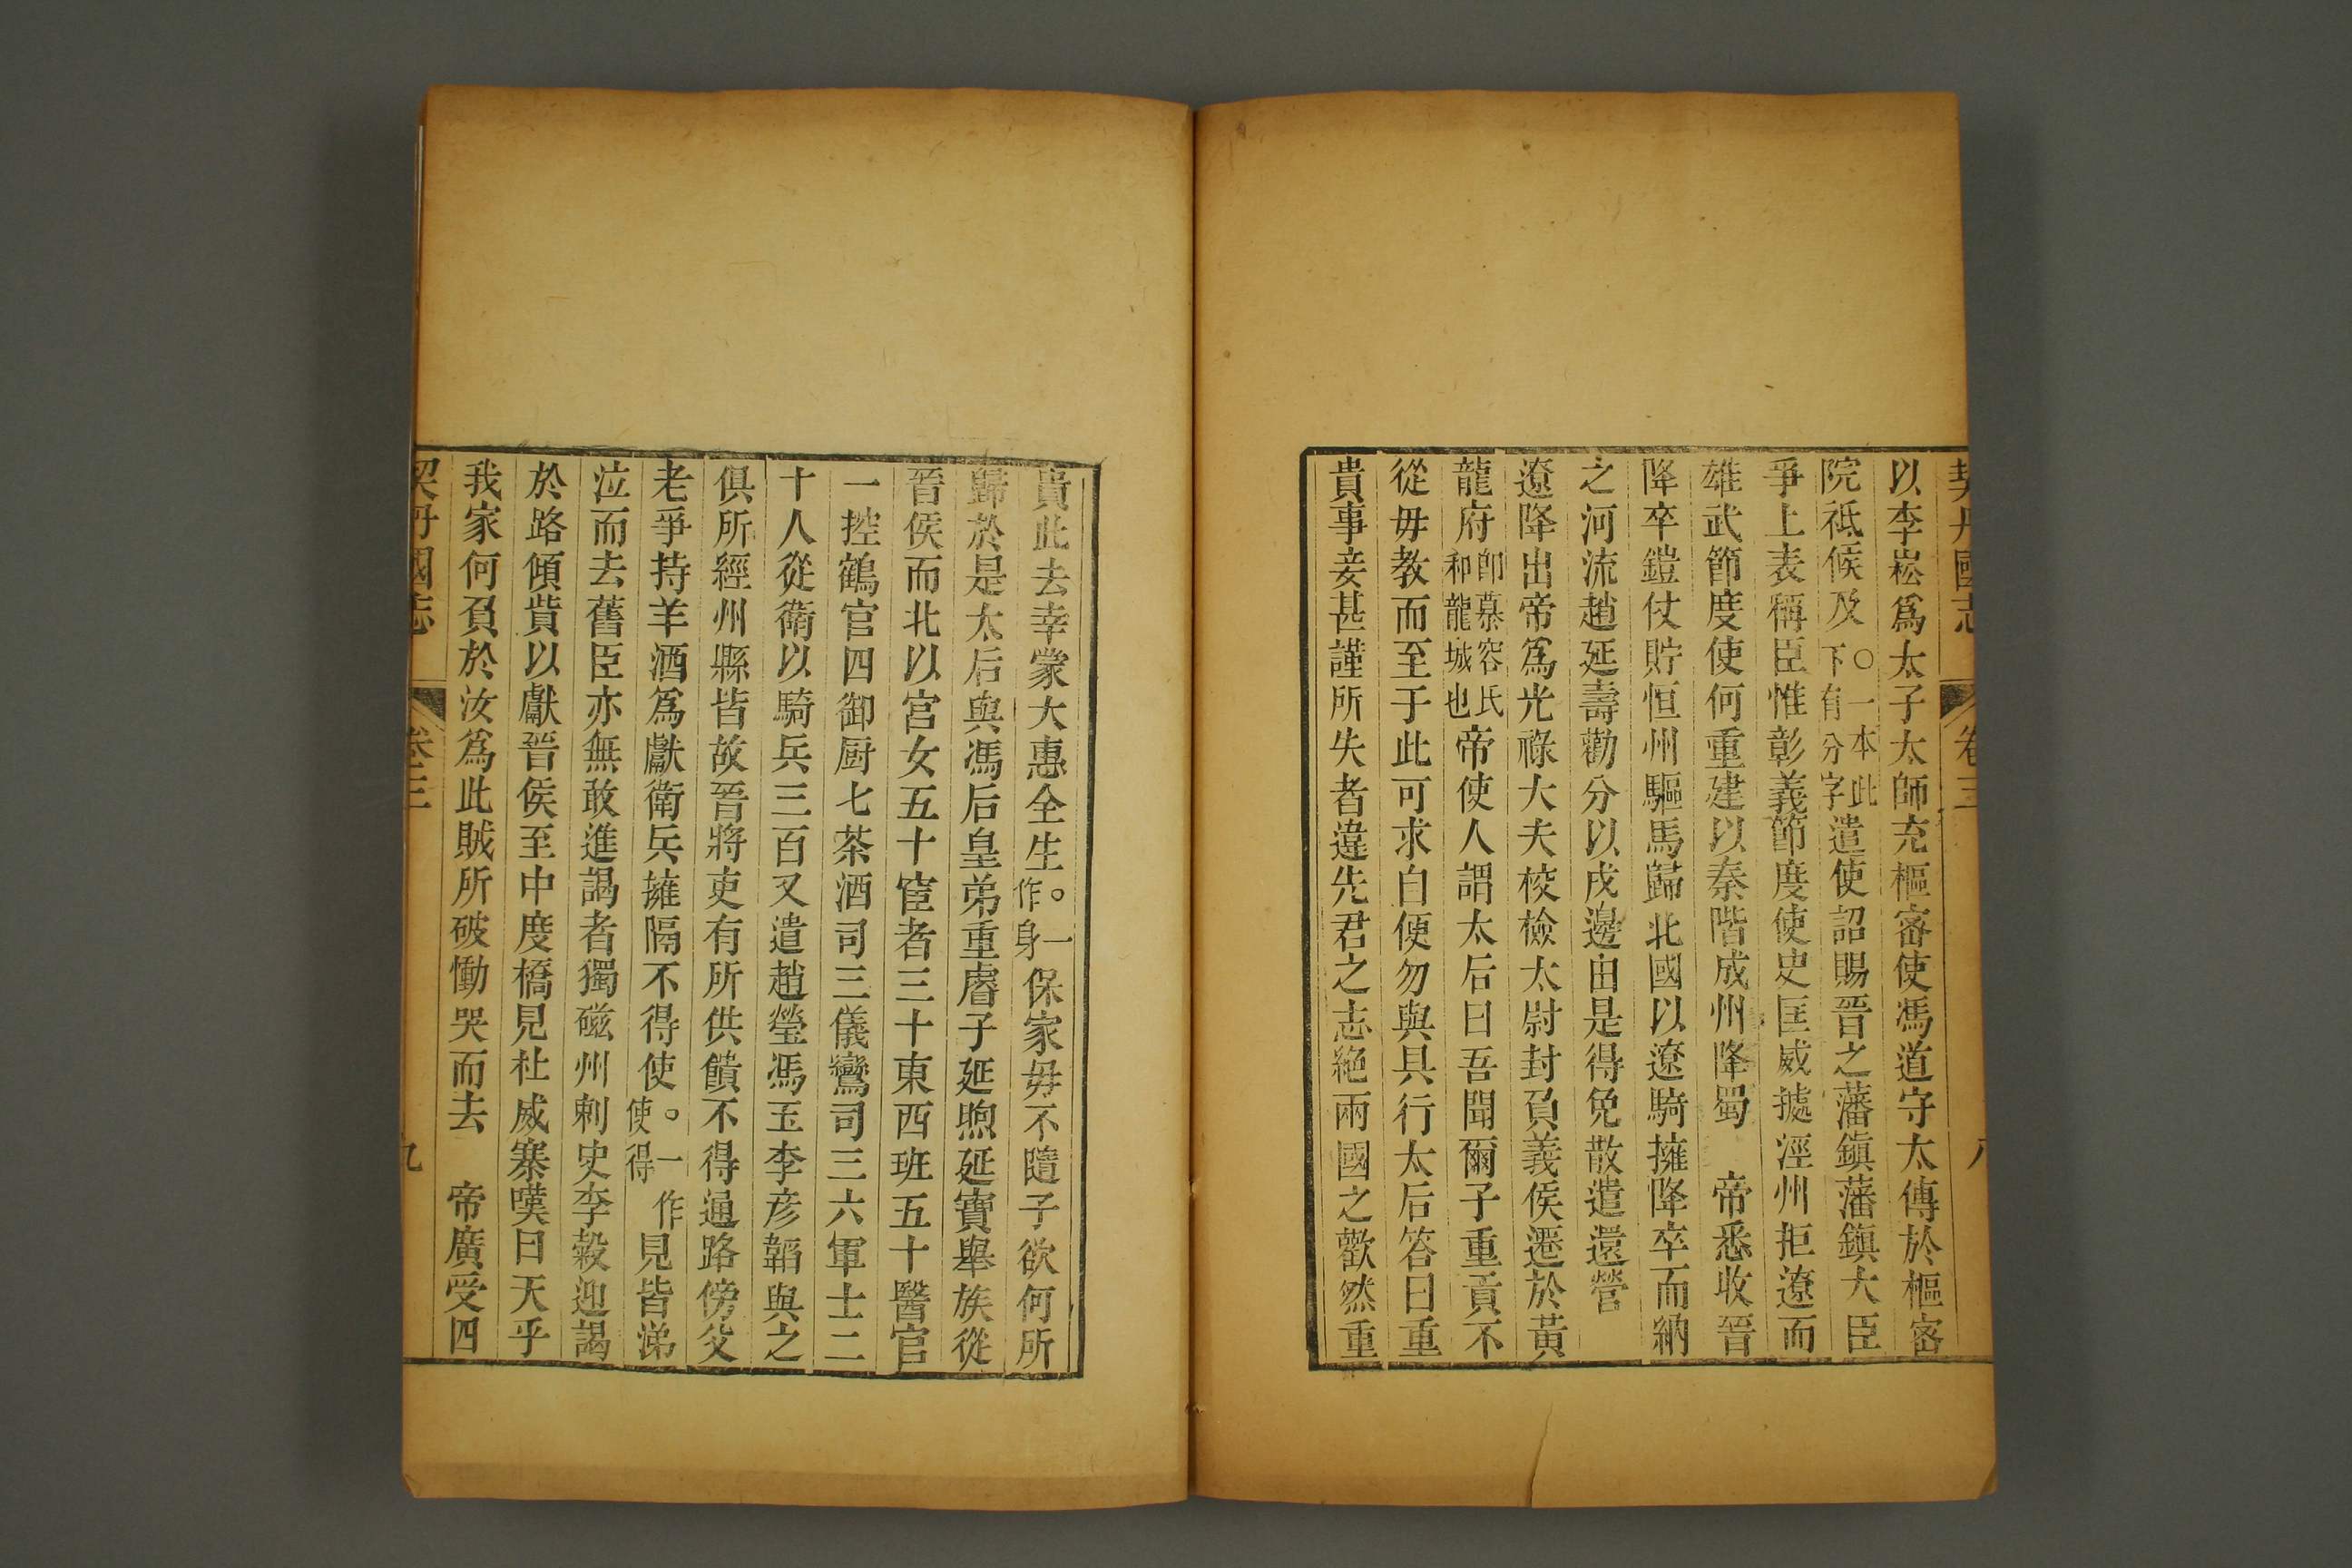 契丹國志 卷三 八
以李崧爲太子太師充樞密使馮道守太傅於樞密
院祗候及〇一本此下有分字遣使詔賜晉之藩鎮藩鎮大臣
爭上表稱臣惟彰義節度使史匡威據涇州拒遼而
雄武節度使何重建以秦階成州降蜀 帝悉收晉
降卒鎧仗貯恒州驅馬歸北國以遼騎擁降卒而納
之河流趙延壽勸分以戍邊由是得免散遣還營
遼降出帝爲光祿大夫檢校太尉封負義侯遷於黃
龍府卽慕容氏和龍城也帝使人謂太后曰吾聞爾子重貴不
從毋教而至于此可求自便勿與具行太后答曰重
貴事妾甚謹所失者違先君之志絶兩國之歡然重
貴此去幸蒙大惠全生。一作身保家毋不隨子欲何所
歸於是太后與馮后皇弟重睿子延煦延寶舉族從
晉侯而北以宮女五十宦者三十東西班五十醫官
一控鶴官四御厨七茶酒司三儀鸞司三六軍士二
十人從衛以騎兵三百又遣趙瑩馮玉李彥韜與之
俱所經州縣皆故晉將吏有所供饋不得通路傍父
老爭持羊酒爲獻衛兵擁隔不得使。一作使得見皆涕
泣而去舊臣亦無敢進謁者獨磁州刺史李穀迎謁
於路傾貲以獻晉侯至中度橋見杜威寨嘆曰天乎
我家何負於汝爲此賊所破慟哭而去 帝廣受四
契丹國志 卷三 九